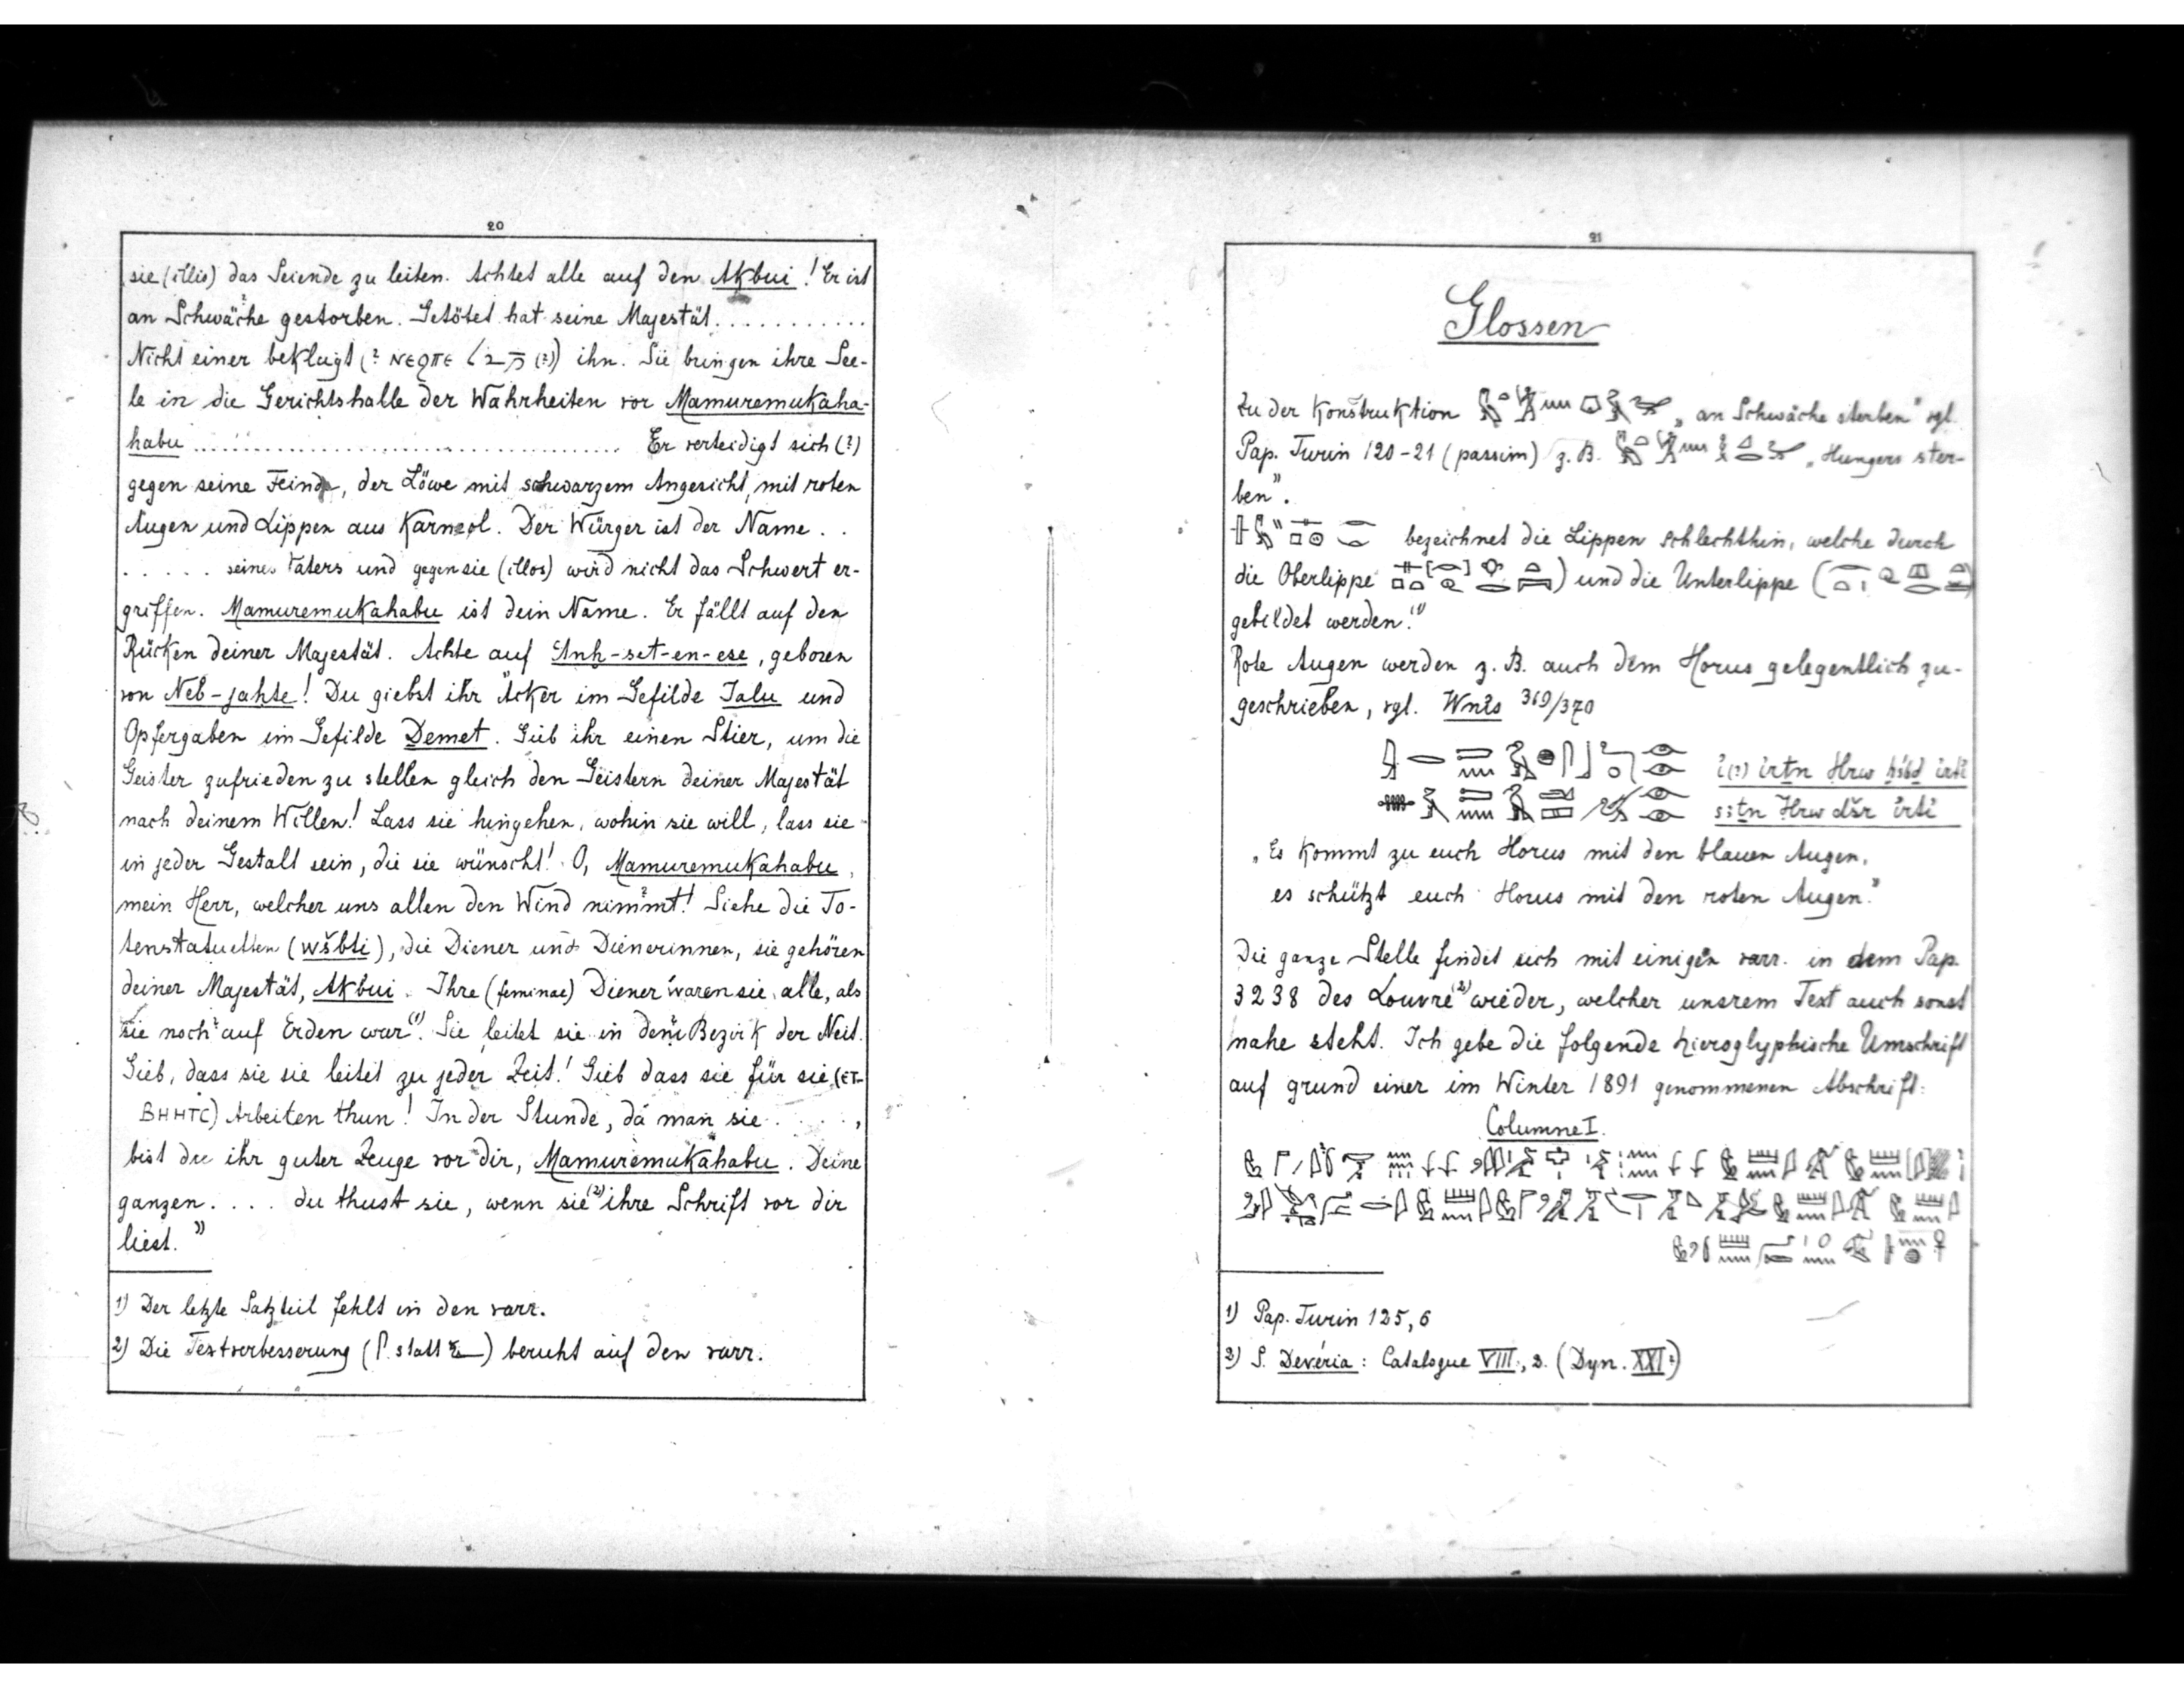 20
sie (illis) das Seiende zu leiten. Achtet alle auf den Akbui! Er ist
an Schwäche gestorben. Getötet hat seine Majestät...........
Nicht einer beklagt (? ⲛⲉϩⲡⲉ (?)) ihn. Sie bringen ihre See-
le in die Gerichtshalle der Wahrheiten vor Mamuremukaha-
habu .......................................... Er verteidigt sich (?)
gegen seine Feinde, der Löwe mit schwarzem Angesicht, mit roten
Augen und Lippen aus Karneol. Der Würger ist der Name . .
. . . . . seines Vaters und gegen sie (illos) wird nicht das Schwert er-
griffen. Mamuremukahabu ist dein Name. Er fällt auf den
Rücken deiner Majestät. Achte auf Anḫ-set-en-ese, geboren
von Neb-jahte! Du giebst ihr Äcker im Gefilde Ialu und
Opfergaben im Gefilde Demet. Gieb ihr einen Stier, um die
Geister zufrieden zu stellen gleich den Geistern deiner Majestät
nach deinem Willen! Lass sie hingehen, wohin sie will, lass sie
in jeder Gestalt sein, die sie wünscht! O, Mamuremukahabu,
mein Herr, welcher uns allen den Wind nimmt! Siehe die To-
tenstatuetten (wšbti), die Diener und Dienerinnen, sie gehören
deiner Majestät, Akbui. Ihre (feminae) Diener waren sie alle, als
sie noch auf Erden war(1). Sie leitet sie in dem Bezirk der Neit.
Gieb, dass sie sie leitet zu jeder Zeit! Gieb dass sie für sie (ⲉⲧ-
ⲃⲏⲏⲧⲥ) Arbeiten thun! In der Stunde, da man sie . . . . ,
bist du ihr guter Zeuge vor dir, Mamuremukahabu. Deine
ganzen . . . . du thust sie, wenn sie(2) ihre Schrift vor dir
liest."
1) Der letzte Satzteil fehlt in den varr.
2) Die Textverbesserung ( statt ) beruht auf den varr.
21
Glossen
Zu der Konstruktion „an Schwäche sterben" vgl.
Pap. Turin 120-21 (passim) z. B. „Hungers ster-
ben".
bezeichnet die Lippen schlechthin, welche durch
die Oberlippe ) und die Unterlippe (
gebildet werden.(1)
Rote Augen werden z. B. auch dem Horus gelegentlich zu-
geschrieben, vgl. Wnis 369/370
i(?) irṯn Hrw ḫsbḏ irti
siṯn Hrw dšr irti
„Es kommt zu euch Horus mit den blauen Augen,
es schützt euch Horus mit den roten Augen."
Die ganze Stelle findet sich mit einigen varr. in dem Pap.
3238 des Louvre(2) wieder, welcher unsrem Text auch sonst
nahe steht. Ich gebe die folgende hieroglyphische Umschrift
auf grund einer im Winter 1891 genommenen Abschrift:
Columne I.
1) Pap. Turin 125,6
2) S. Devéria: Catalogue VIII, 2. (Dyn. XXI?)